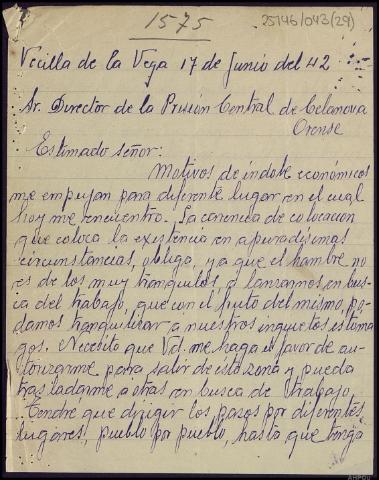 1575
25146/043(29)
Vecilla de la Vega 17 de Junio del 42
Sr. Director de la Prisión Central de Celanova
Orense
Estimado señor:
Motivos de índole económicos
me empujan para diferente lugar en el cual
hoy me encuentro. La carencia de colocación
que coloca la existencia en apuradísimas
circunstancias, obliga, ya que el hambre no
es de los muy tranquilos, a lanzarnos en bus-
ca del trabajo, que con el fruto del mismo, po-
damos tranquilizar a nuestros inquietos estóma-
gos. Necesito que Vd. me haga el favor de au-
torizarme para salir de esta zona y pueda
trasladarme a otras en busca de trabajo.
Tendré que dirigir los pasos por diferentes
lugares, pueblo por pueblo, hasta que tenga
AHPOU